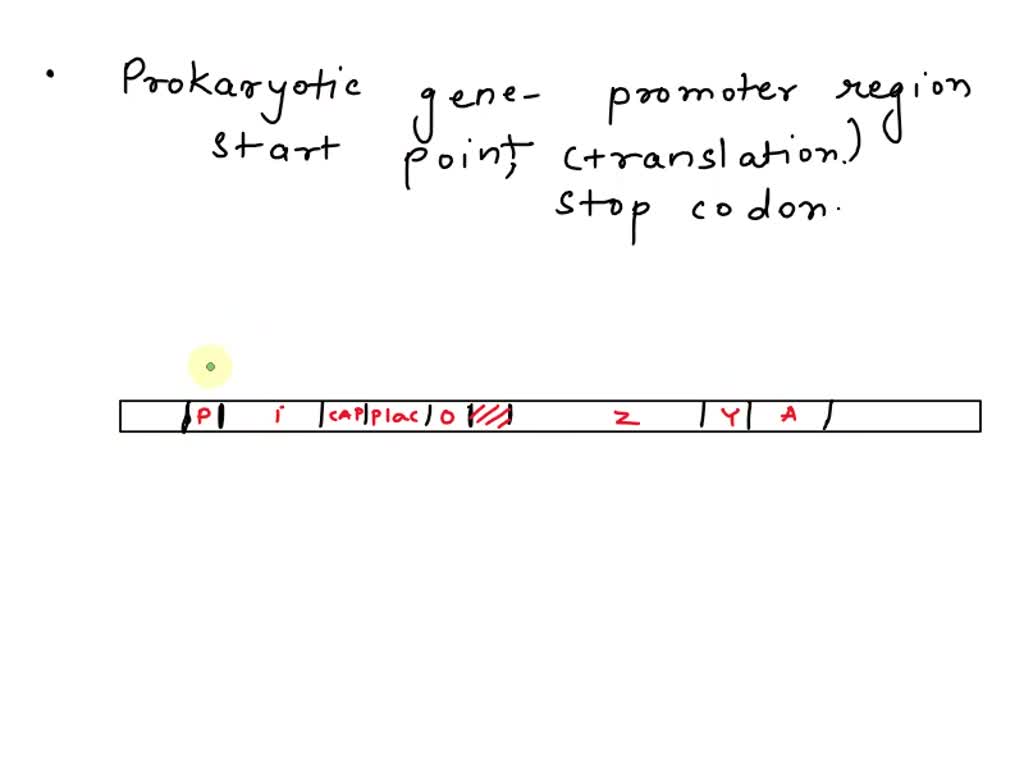 • Prokaryotic gene- promoter region
start point, (translation.)
stop codon.
P i CAP Plac O Z Y A